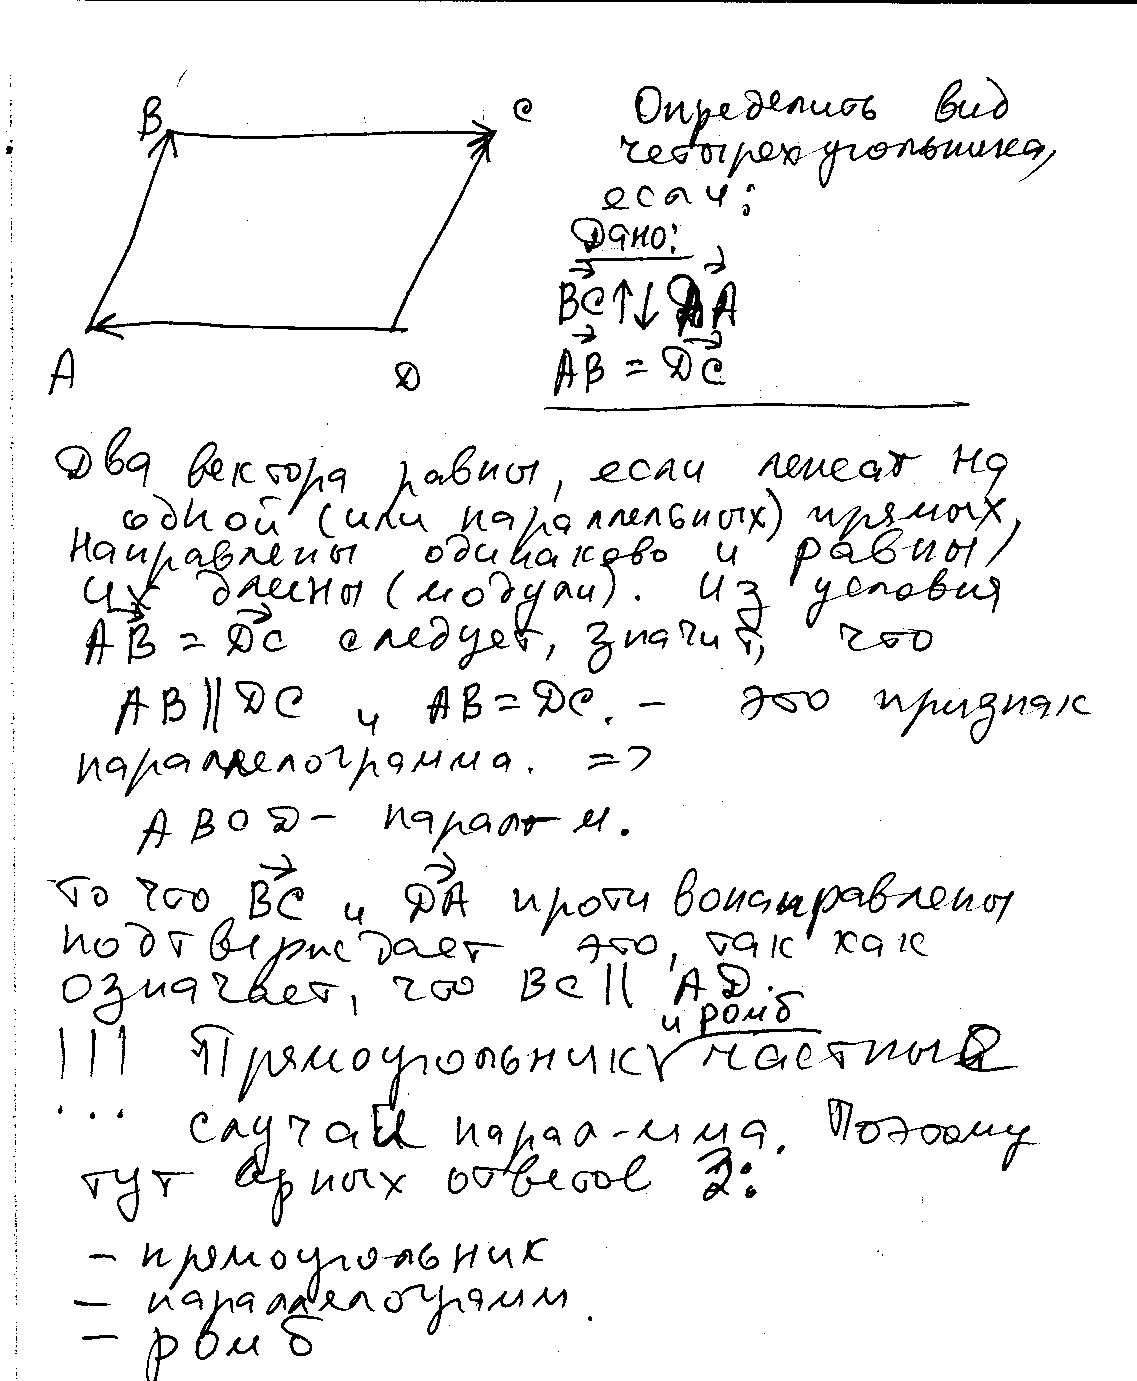 B
C
A
D
Определить вид
четырехугольника,
если:
Дано:
BC ↑↓ DA
AB = DC
Два вектора равны, если лежат на
одной (или параллельных) прямых,
направлены одинаково и равны
их длины (модули). Из условия
AB = DC следует, значит, что
AB || DC и AB = DC. - это признак
параллелограмма. =>
ABCD - парал-м.
То что BC и DA противонаправлены
подтверждает это, так как
означает, что BC || AD.
и ромб
!!! Прямоугольник частные
случаи парал-мма. Поэтому
тут верных ответов 3:
- прямоугольник
- параллелограмм
- ромб